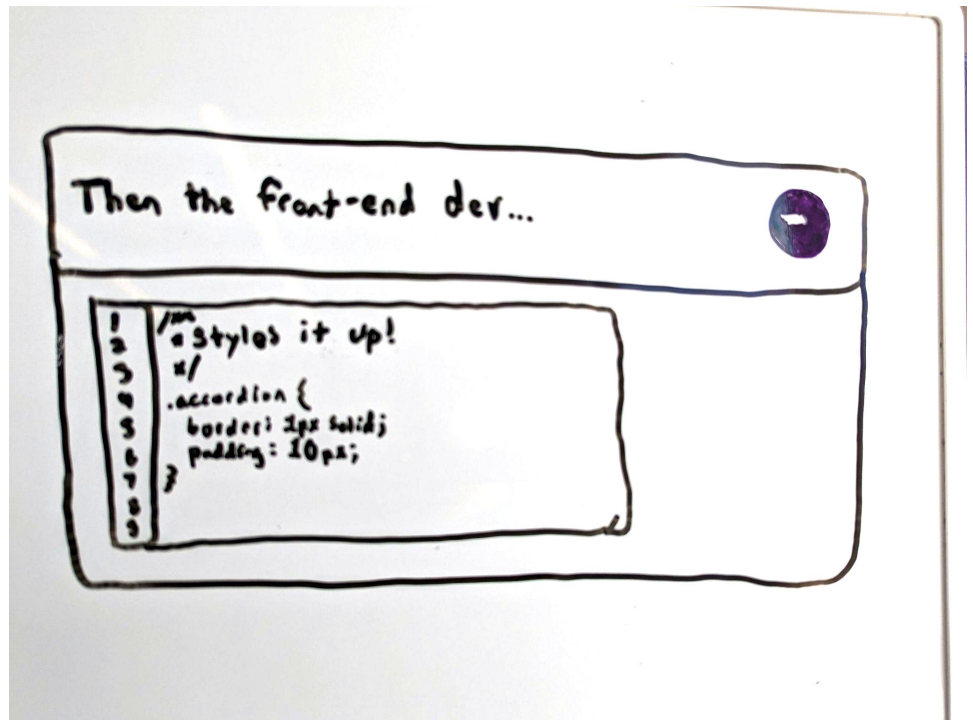 Then the front-end dev...
1 /**
2 * Styles it up!
3 */
4 .accordion {
5 border: 1px solid;
6 padding: 10px;
7 }
8
9